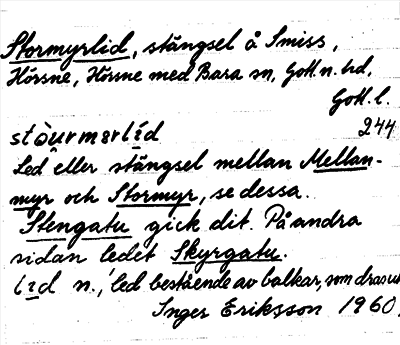 Stormyrlid, stängsel å Smiss,
Hörsne, Hörsne med Bara sn, Gotl. n. hd,
Gotl. l.
244
stòu̯rmərlíd
Led eller stängsel mellan Mellan-
myr och Stormyr, se dessa.
Stengatu gick dit. På andra
sidan ledet Skyrgatu.
líd n., led bestående av balkar, som dras ut
Inger Eriksson 1960.